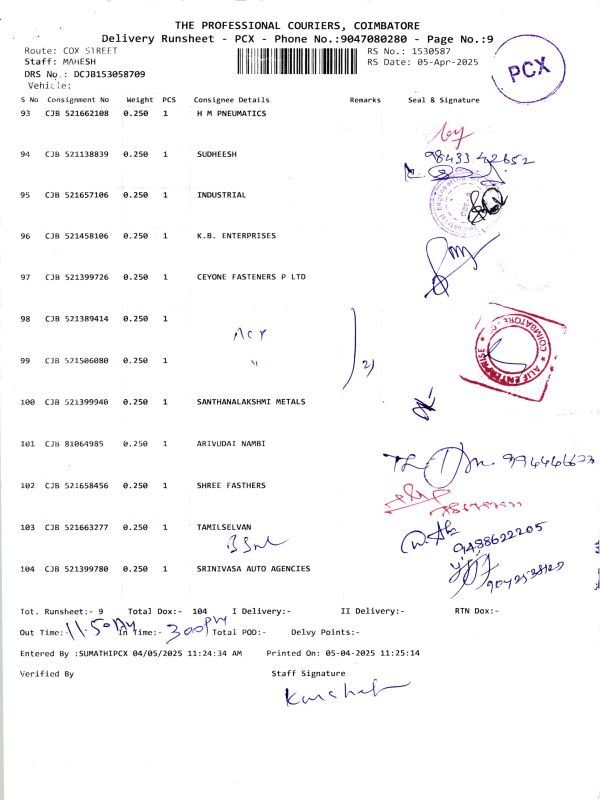 THE PROFESSIONAL COURIERS, COIMBATORE
Delivery Runsheet - PCX - Phone No.:9047080280 - Page No.:9
Route: COX STREET RS No.: 1530587
Staff: MAHESH RS Date: 05-Apr-2025
DRS No.: DCJB153058709
Vehicle:
PCX
S No Consignment No Weight PCS Consignee Details Remarks Seal & Signature
93 CJB 521662108 0.250 1 H M PNEUMATICS
94 CJB 521138839 0.250 1 SUDHEESH 9843342652
95 CJB 521657106 0.250 1 INDUSTRIAL
96 CJB 521458106 0.250 1 K.B. ENTERPRISES
97 CJB 521399726 0.250 1 CEYONE FASTENERS P LTD
98 CJB 521389414 0.250 1
ACP
99 CJB 521506080 0.250 1 " 2)
COIMBATORE
ALIF ENTERPRISE
100 CJB 521399940 0.250 1 SANTHANALAKSHMI METALS
101 CJB 81064985 0.250 1 ARIVUDAI NAMBI
102 CJB 521658456 0.250 1 SHREE FASTHERS
103 CJB 521663277 0.250 1 TAMILSELVAN
9488622205
104 CJB 521399780 0.250 1 SRINIVASA AUTO AGENCIES
Tot. Runsheet:- 9 Total Dox:- 104 I Delivery:- II Delivery:- RTN Dox:-
Out Time:- 11.50 AM In Time:- 3.00 PM Total POD:- Delvy Points:-
Entered By :SUMATHIPCX 04/05/2025 11:24:34 AM Printed On: 05-04-2025 11:25:14
Verified By Staff Signature